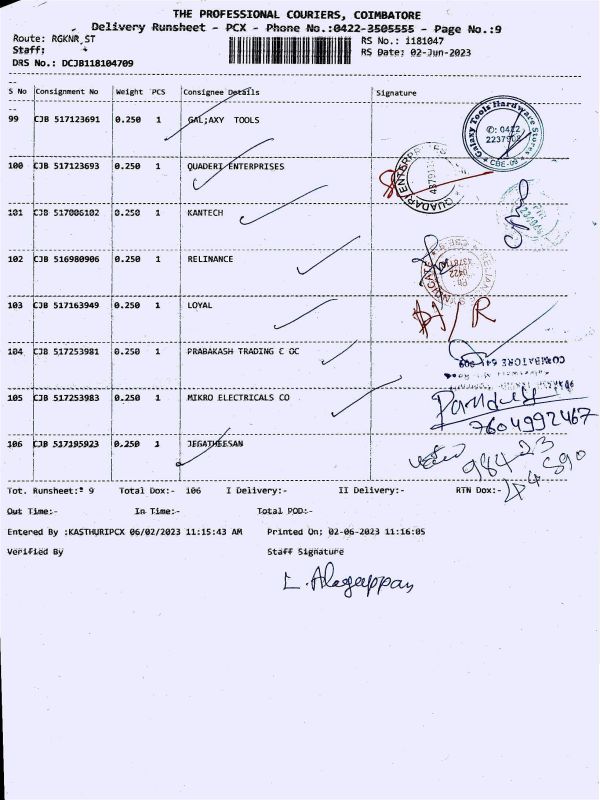 THE PROFESSIONAL COURIERS, COIMBATORE
Delivery Runsheet - PCX - Phone No.:0422-3505555 - Page No.:9
Route: RGKNR_ST RS No.: 1181047
Staff: RS Date: 02-Jun-2023
DRS No.: DCJB118104709
S No Consignment No Weight PCS Consignee Details Signature
99 CJB 517123691 0.250 1 GAL;AXY TOOLS
Galaxy Tools Hardware Stores
✆: 0422
CBE-09
100 CJB 517123693 0.250 1 QUADERI ENTERPRISES
101 CJB 517006102 0.250 1 KANTECH
102 CJB 516980906 0.250 1 RELINANCE
0422
103 CJB 517163949 0.250 1 LOYAL
104 CJB 517253981 0.250 1 PRABAKASH TRADING C OC
COIMBATORE 641 009
105 CJB 517253983 0.250 1 MIKRO ELECTRICALS CO
7604992467
106 CJB 517195923 0.250 1 JEGATHEESAN
98423
Tot. Runsheet:- 9 Total Dox:- 106 I Delivery:- II Delivery:- RTN Dox:-
Out Time:- In Time:- Total POD:-
Entered By :KASTHURIPCX 06/02/2023 11:15:43 AM Printed On: 02-06-2023 11:16:05
Verified By Staff Signature
L. Alagappan